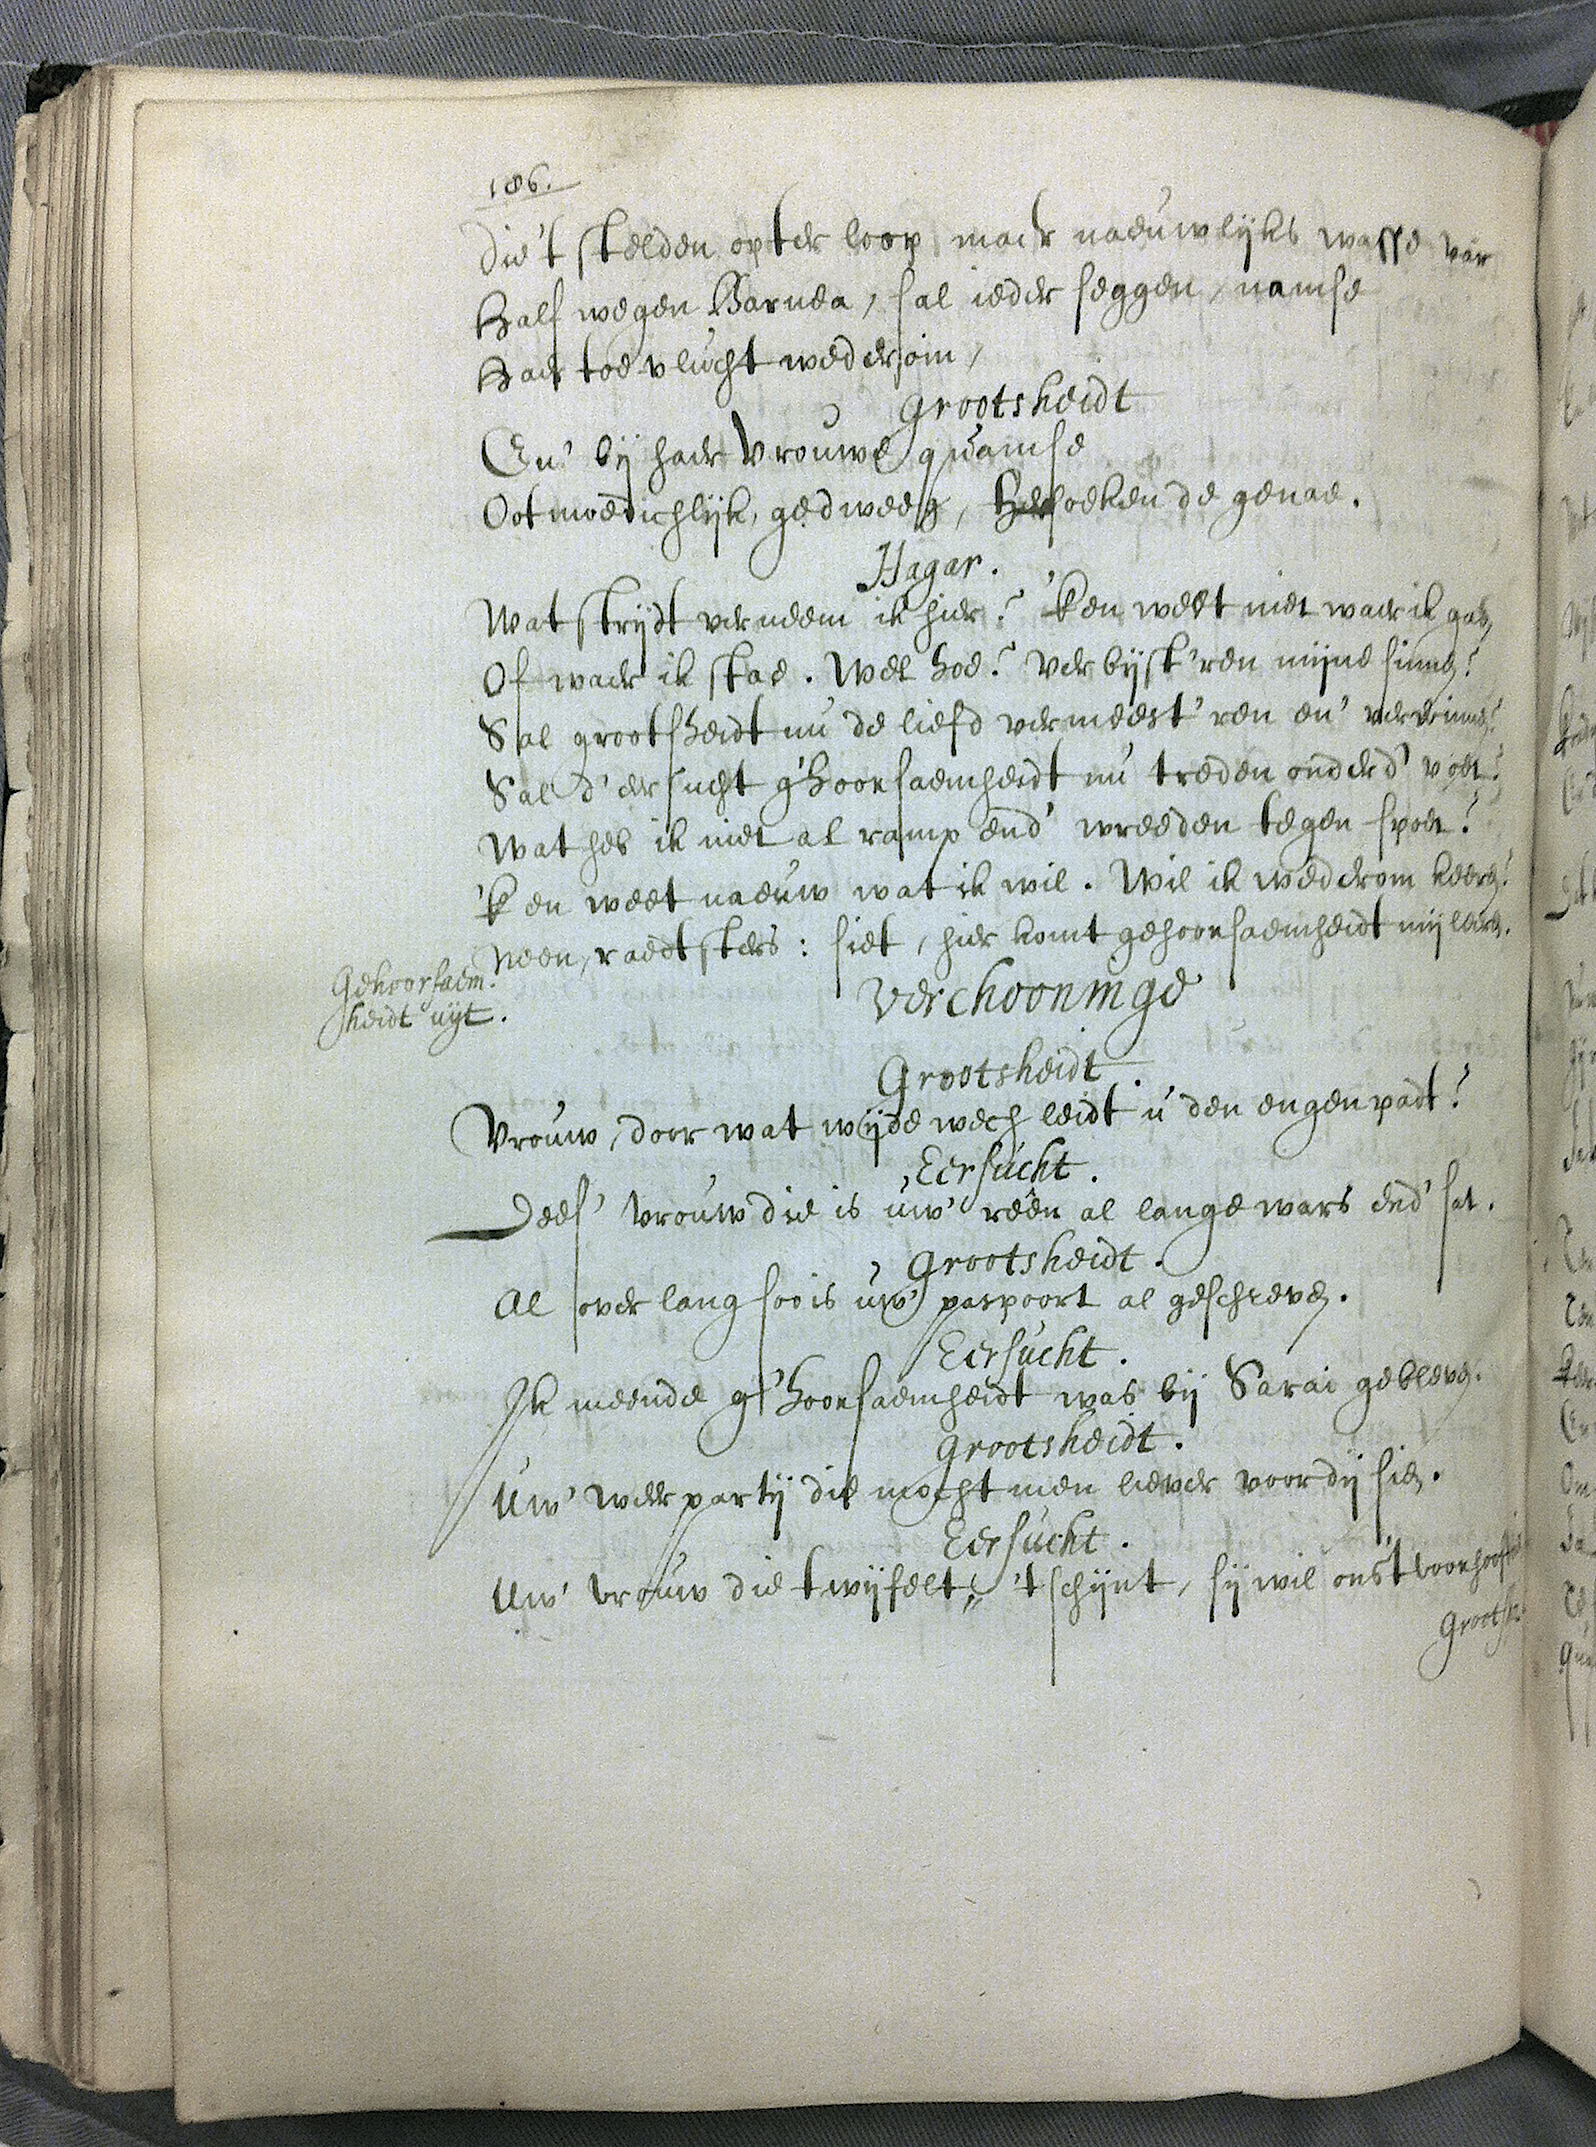 186.
Die't stelden opter loop maer naeuwlijks wasse van
Half wegen Barnea, sal ieder seggen, namse
Haer toevlucht wederom,
Grootsheidt
En' bij haer vrouwe quamse
Ootmoedichlijk, gedweeg, versoeken de genae.
Hagar.
Wat strijdt verneem ik hier? 'k en weet niet waer ik gae,
Of waer ik stae. Wel hoe? Verbijst'ren mijne sinnen?
Sal grootsheidt nu de liefd vermeest'ren en' verwinnen?
Sal d'eersucht g'hoorsaemheidt nu treden onder d' voet?
Wat heb ik niet al ramp end' wreeden tegenspoet?
'k en weet naeuw wat ik wil. Wil ik wederom keeren?
Neen, raedtsters: siet, hier komt gehoorsaemheidt mij leeren.
Gehoorsaem-
heidt uijt.
Verthooninge
Grootsheidt
Vrouw, door wat wijde wech leidt u den engen padt?
Eersucht.
Dees' vrouw die is uw' reên al lange wars end' sat.
Grootsheidt.
Al over lang soo is uw' paspoort al geschreven.
Eersucht.
Ik meende g'hoorsaemheidt was bij Sarai gebleven.
Grootsheidt.
Uw' weerpartij die mocht men liever voor dij sien.
Eersucht.
Uw' vrouw die twijfelt; 't schijnt, sij wil ons 't voorhooft
Grootsh